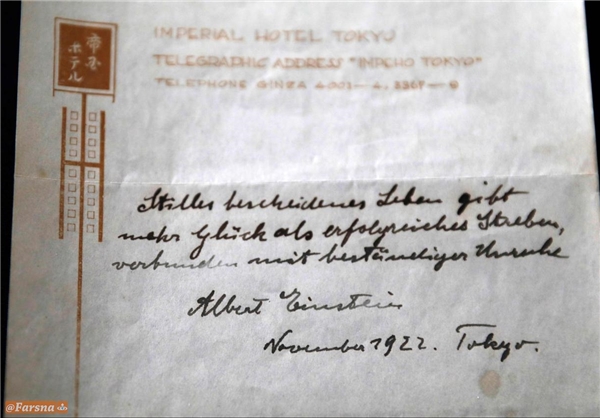 IMPERIAL HOTEL TOKYO
TELEGRAPHIC ADDRESS "IMPEHO TOKYO"
TELEPHONE GINZA 4001—4, 3367—9
帝国
ホテル
Stilles bescheidenes Leben gibt
mehr Glück als erfolgreiches Streben,
verbunden mit beständiger Unruhe
Albert Einstein
November 1922. Tokyo.
@Farsna